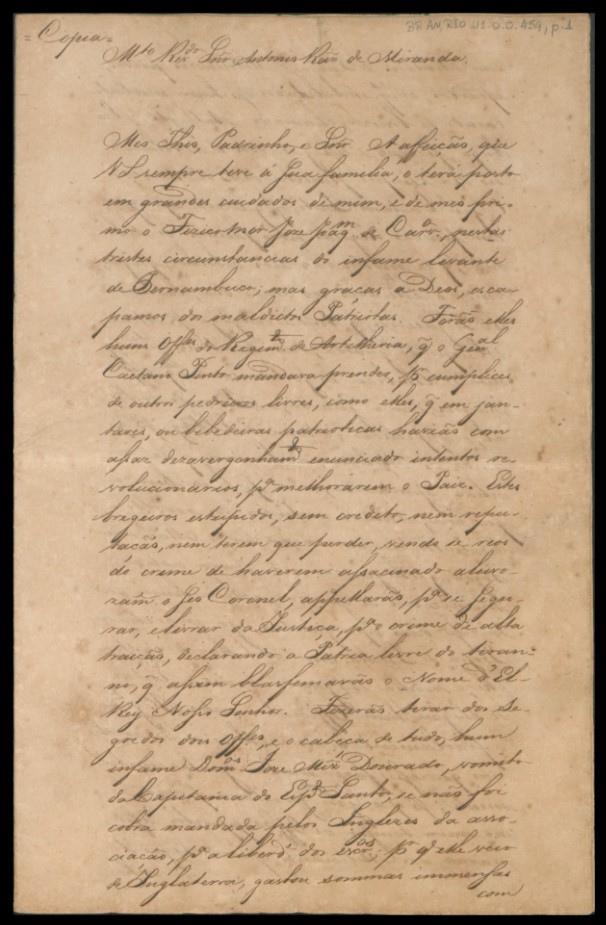 = Copia =
BR AN, RIO UI.0.0.459, p.1
M.to Rev.do Snr. Antonio Roiz de Miranda.
Meo Thio, Padrinho, e Snr. A afeição, que
V S sempre teve á sua familia, o terá posto
em grandes cuidados de mim, e de meo pri-
mo o Fizico Mor Joze de Carv.o, nestas
tristes circunstancias do infame levante
de Pernambuco; mas graças a Deos, esca-
pamos dos maldictos Pátriotas. Forão elles
huns Off.es do Regim.to de Artelheria, q̃ o Gen.al
Caetano Pinto mandara prender, p.r cumplices
de outros pedreiros livres, como elles, q̃ em jan-
tares, ou bebedeiras patrioticas havião com
assaz dezavergonham.to enunciado intentos re-
volucionarios, p.a melhorarem o Paiz. Estes
bregeiros estupidos, sem credito, nem repu-
tação, nem terem que perder, vendo-se reos
do crime de haverem assacinado aleivo-
zam.e o seo Coronel, appellarão, p.a se segu-
rar, e livrar da Justiça, p.a o crime de alta
traição, declarando a Pátria livre do tiran-
no, q̃ assim blasfemavão o Nome d'El-
Rey Nosso Senhor. Fizerão tirar dos se-
gredos dous Off.es, e o cabeça de tudo, hum
infame Dom.os Joze Miz̃ Dourado, vomito
da Capitania do Esp.to Santo, se não foi
cobra mandada pelos Inglezes da asso-
ciação, p.a a liberd.e dos escr.os; p.r q̃ elle veio
de Inglaterra, gastou sommas immensas
com